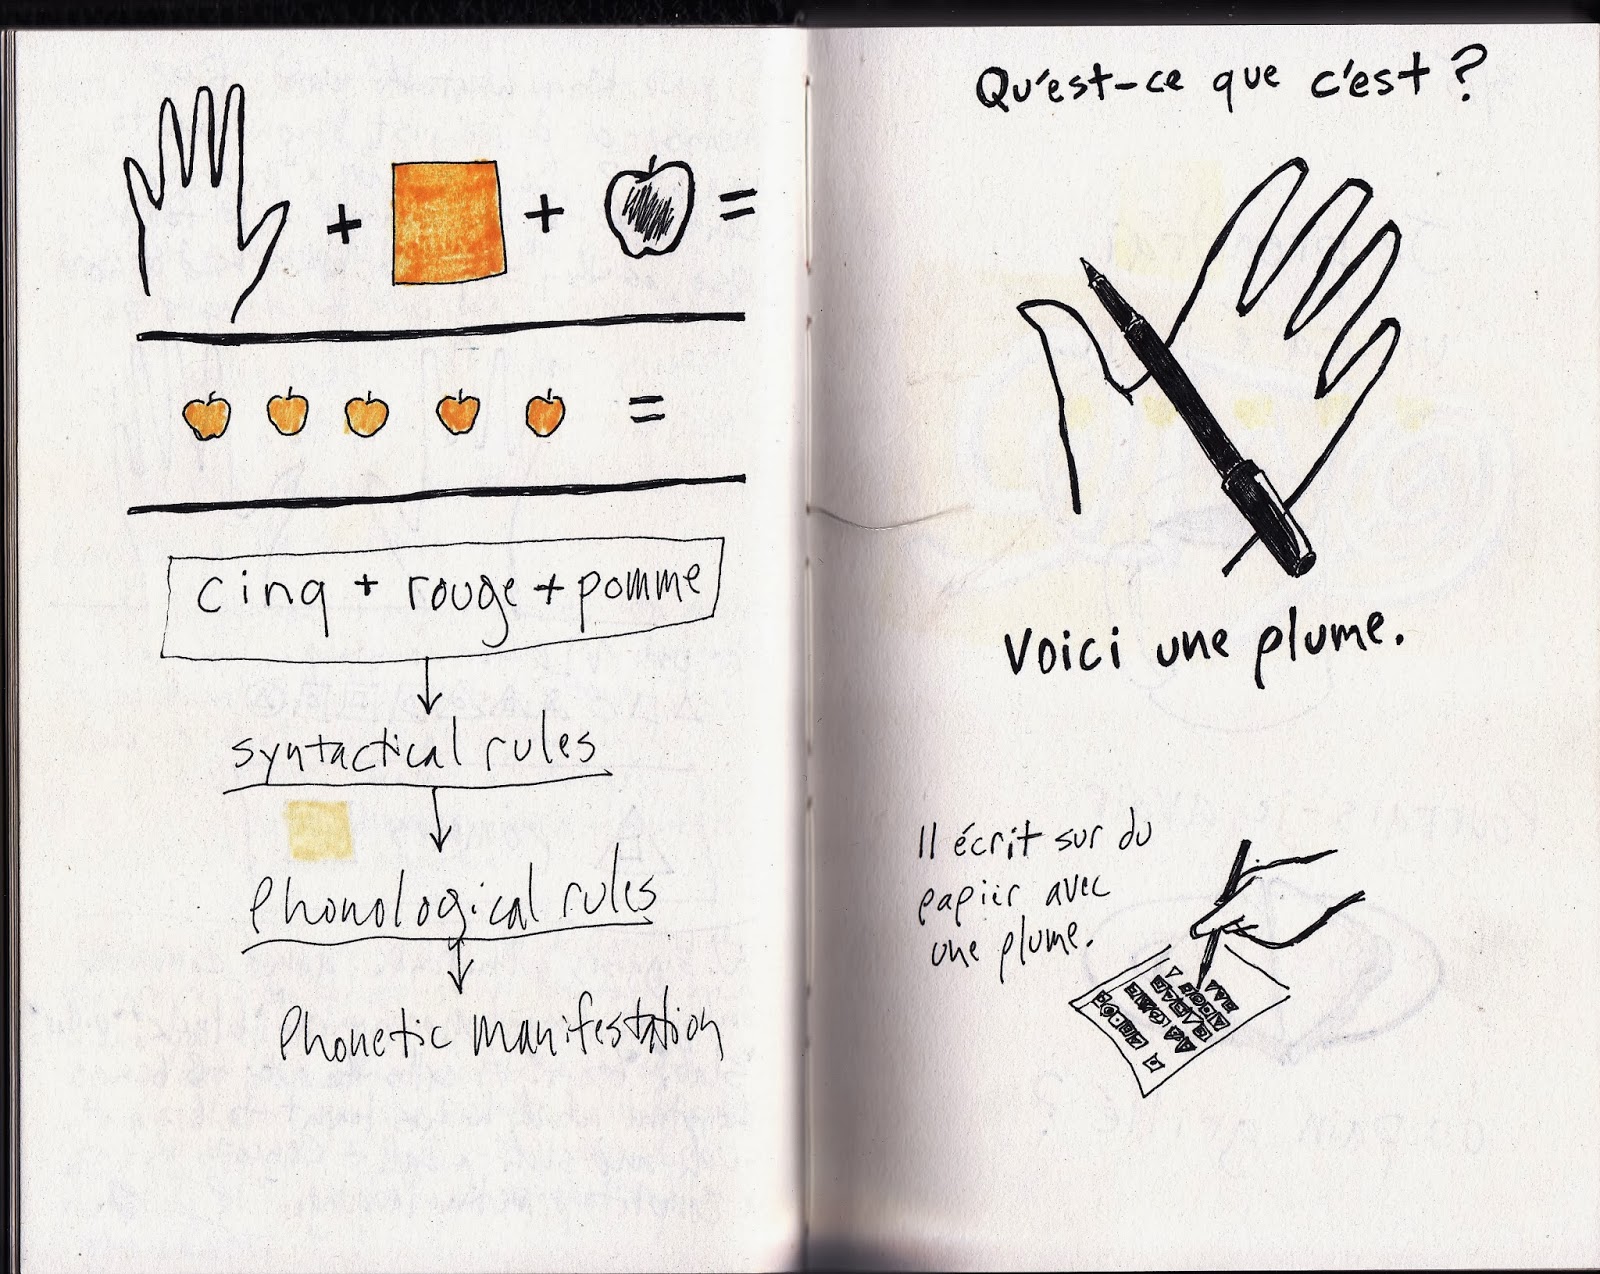 + + =
=
cinq + rouge + pomme
syntactical rules
Phonological rules
Phonetic manifestation
Qu'est-ce que c'est ?
Voici une plume.
Il écrit sur du
papier avec
une plume.